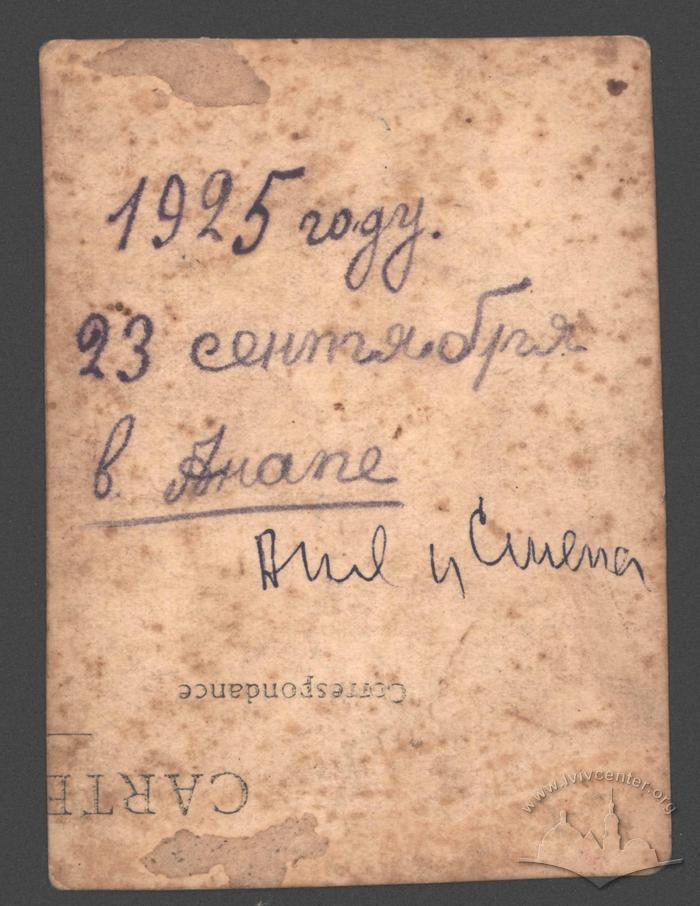 1925 году.
23 сентября
в Анапе
и
Correspondance
CARTE
www.lvivcenter.org